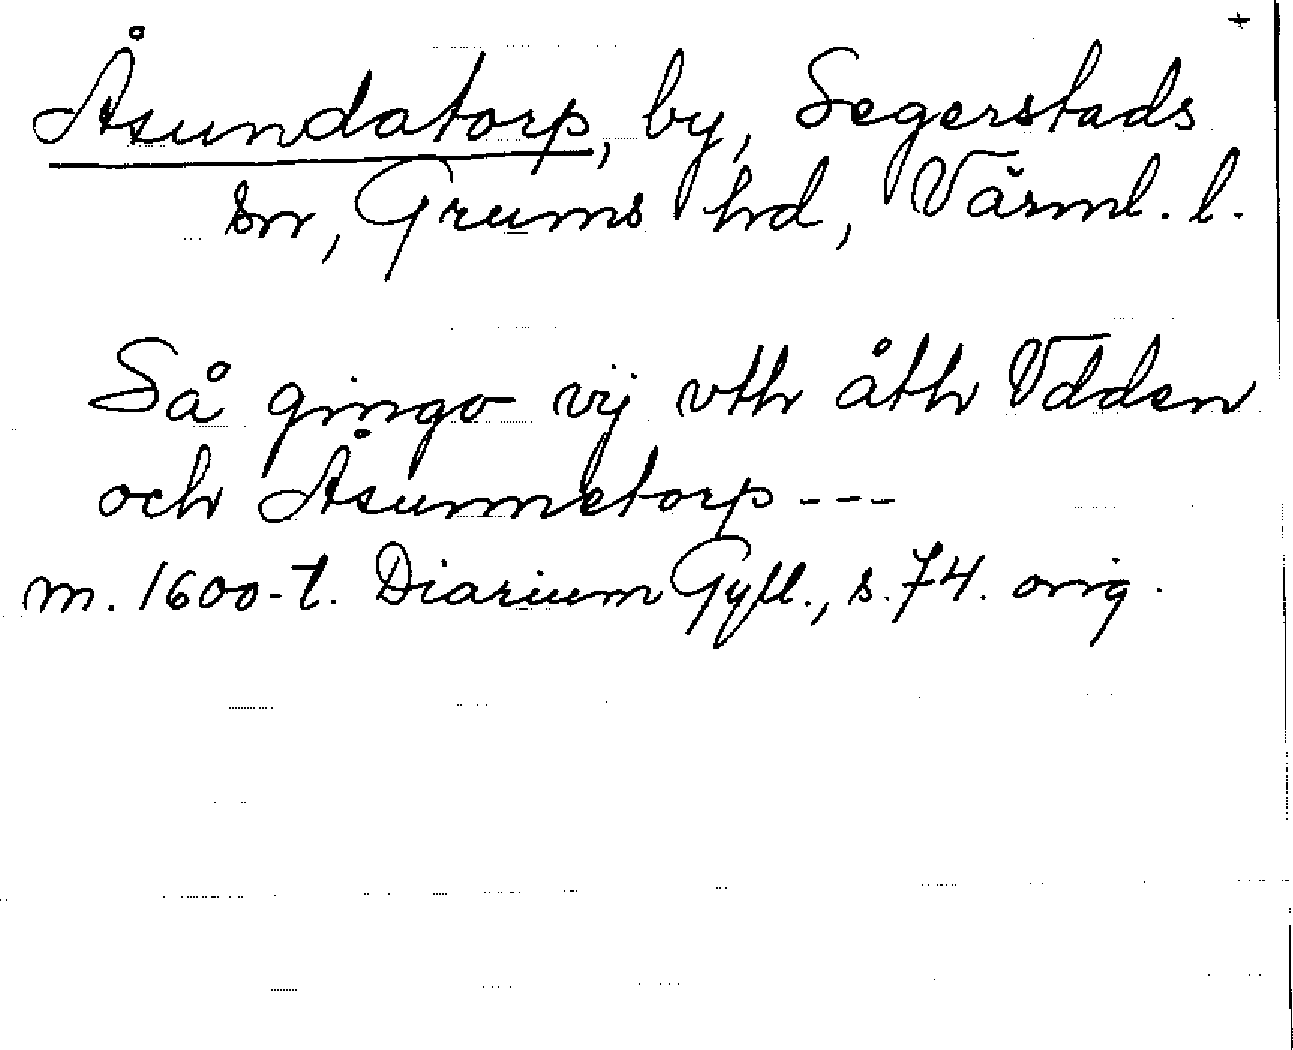 +
Åsundatorp, by, Segerstads
sn, Grums hd, Värml. l.
Så gingo vij vth åth Vdden
och Åsunnetorp ---
m. 1600-t. Diarium Gyll., s. 74. orig.